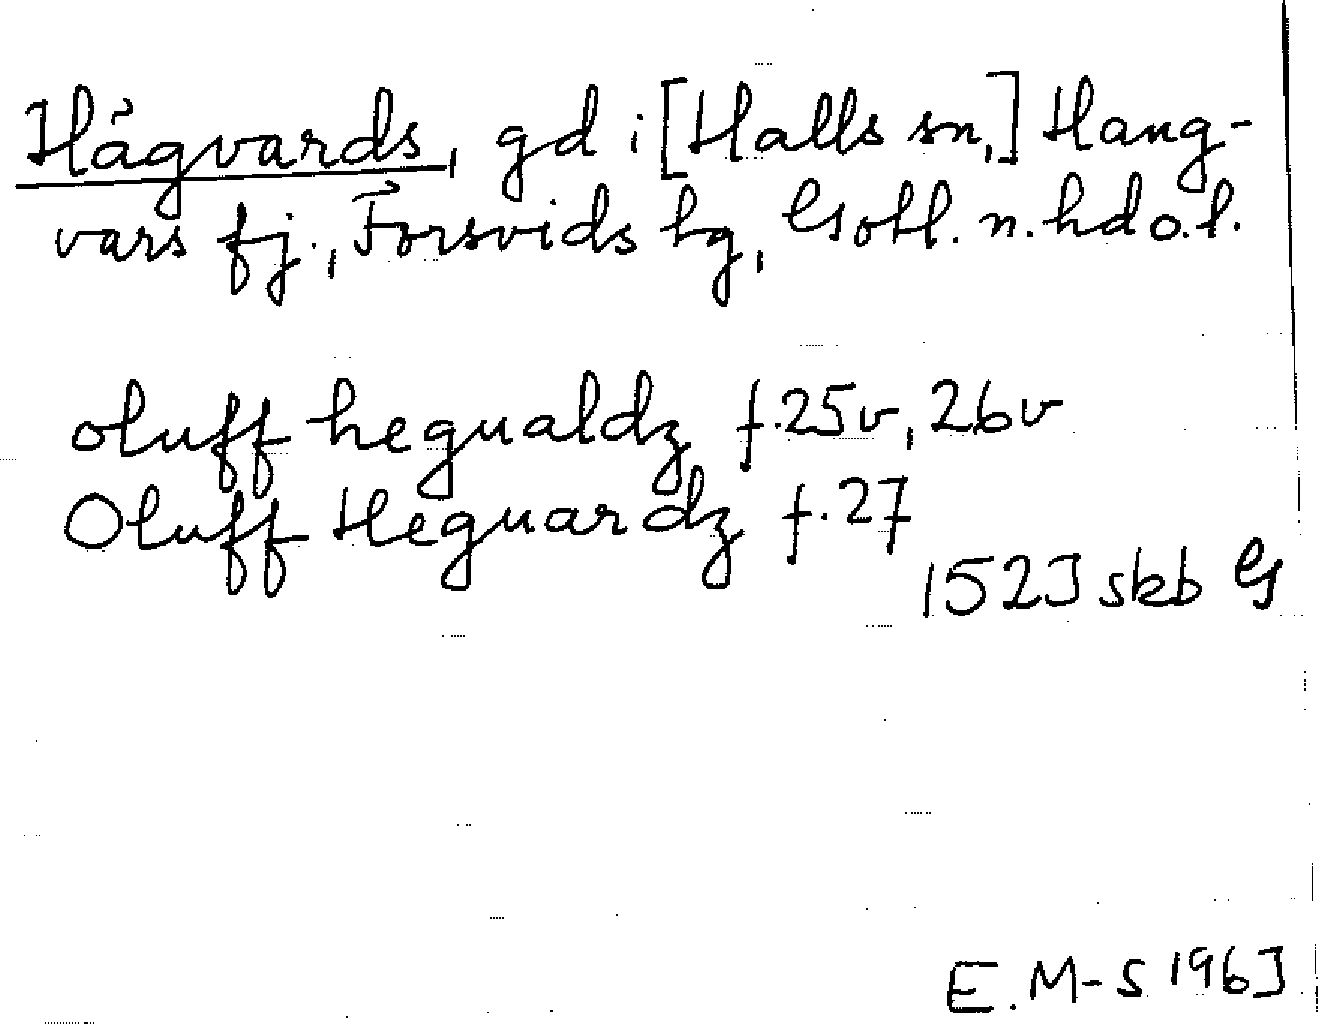 Hägvards, gd i [Halls sn,] Hang-
vars fj., Forsvids hg, Gotl. n. hd o. l.
oluff hegualdz f. 25v, 26v
Oluff Heguardz f. 27
1523 skb G
E. M-S 1963